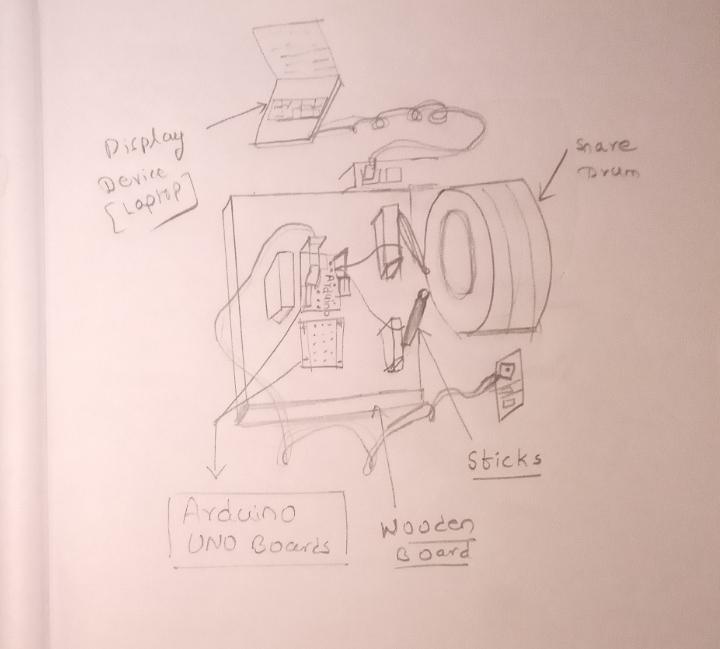 Display
Device
[Laptop]
Snare
Drum
Arduino
Sticks
Arduino
UNO Boards
Wooden
Board